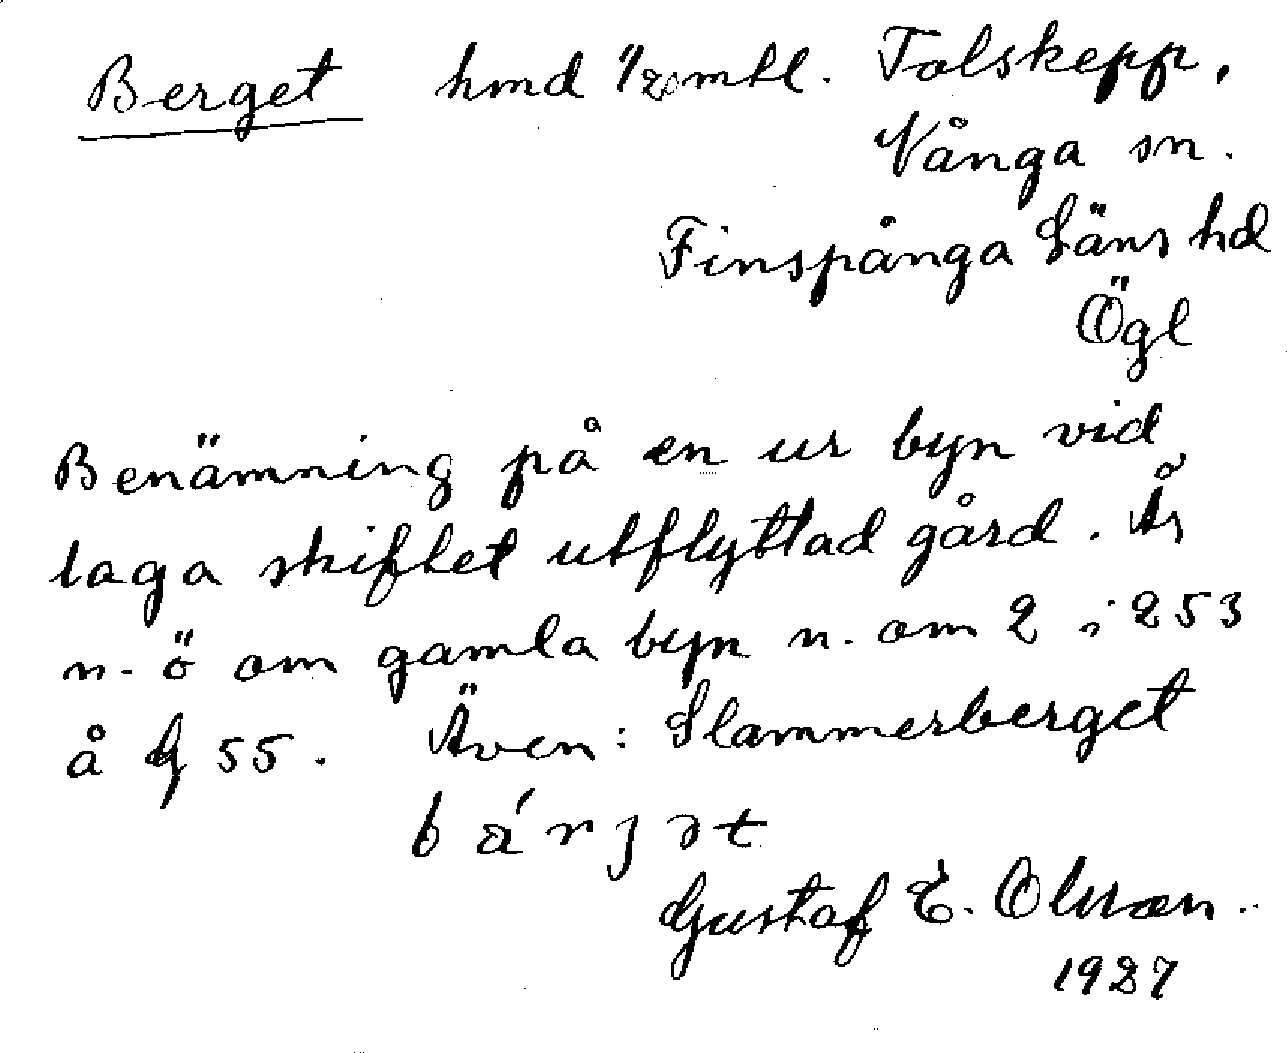 Berget hmd 1/20 mtl. Tolskepp,
Vånga sn.
Finspånga Läns hd
Ögl
Benämning på en ur byn vid
laga skiftet utflyttad gård. Är
n.ö om gamla byn n. om 2 i 253
å G 55. Även: Slammerberget
bárjət
Gustaf E. Olsson.
1927